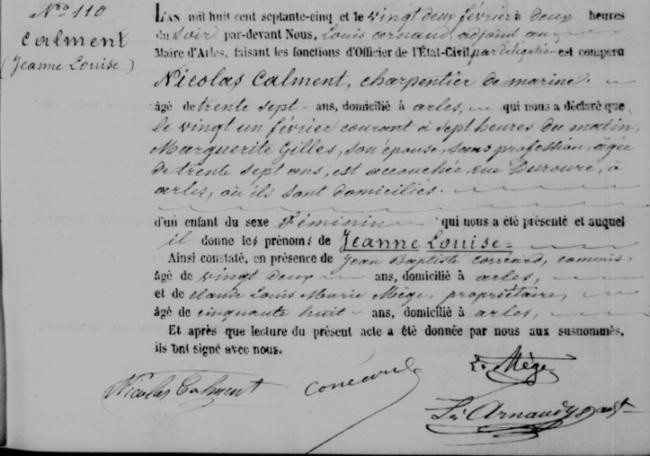 No 110
Calment
(Jeanne Louise)
L'AN mil huit cent septante-cinq et le vingt deux février à deux heures
du soir par-devant Nous, Louis arnaud, adjoint au
Maire d'Arles, faisant les fonctions d'Officier de l'État-Civil, par délégation est comparu
Nicolas Calment, charpentier de marine
âgé de trente sept ans, domicilié à arles, qui nous a déclaré que
le vingt un février courant à sept heures du matin,
Marguerite Gilles, son épouse, sans profession, âgée
de trente sept ans, est accouchée rue Duroure, à
arles, où ils sont domiciliés.
d'un enfant du sexe féminin qui nous a été présenté et auquel
il donne les prénoms de Jeanne Louise
Ainsi constaté, en présence de Jean Baptiste Corréard, commis,
âgé de vingt deux ans, domicilié à arles,
et de claude Louis Marie Mège, propriétaire,
âgé de cinquante huit ans, domicilié à arles,
Et après que lecture du présent acte a été donnée par nous aux susnommés,
ils ont signé avec nous.
Mège
Nicolas Calment
Arnaud